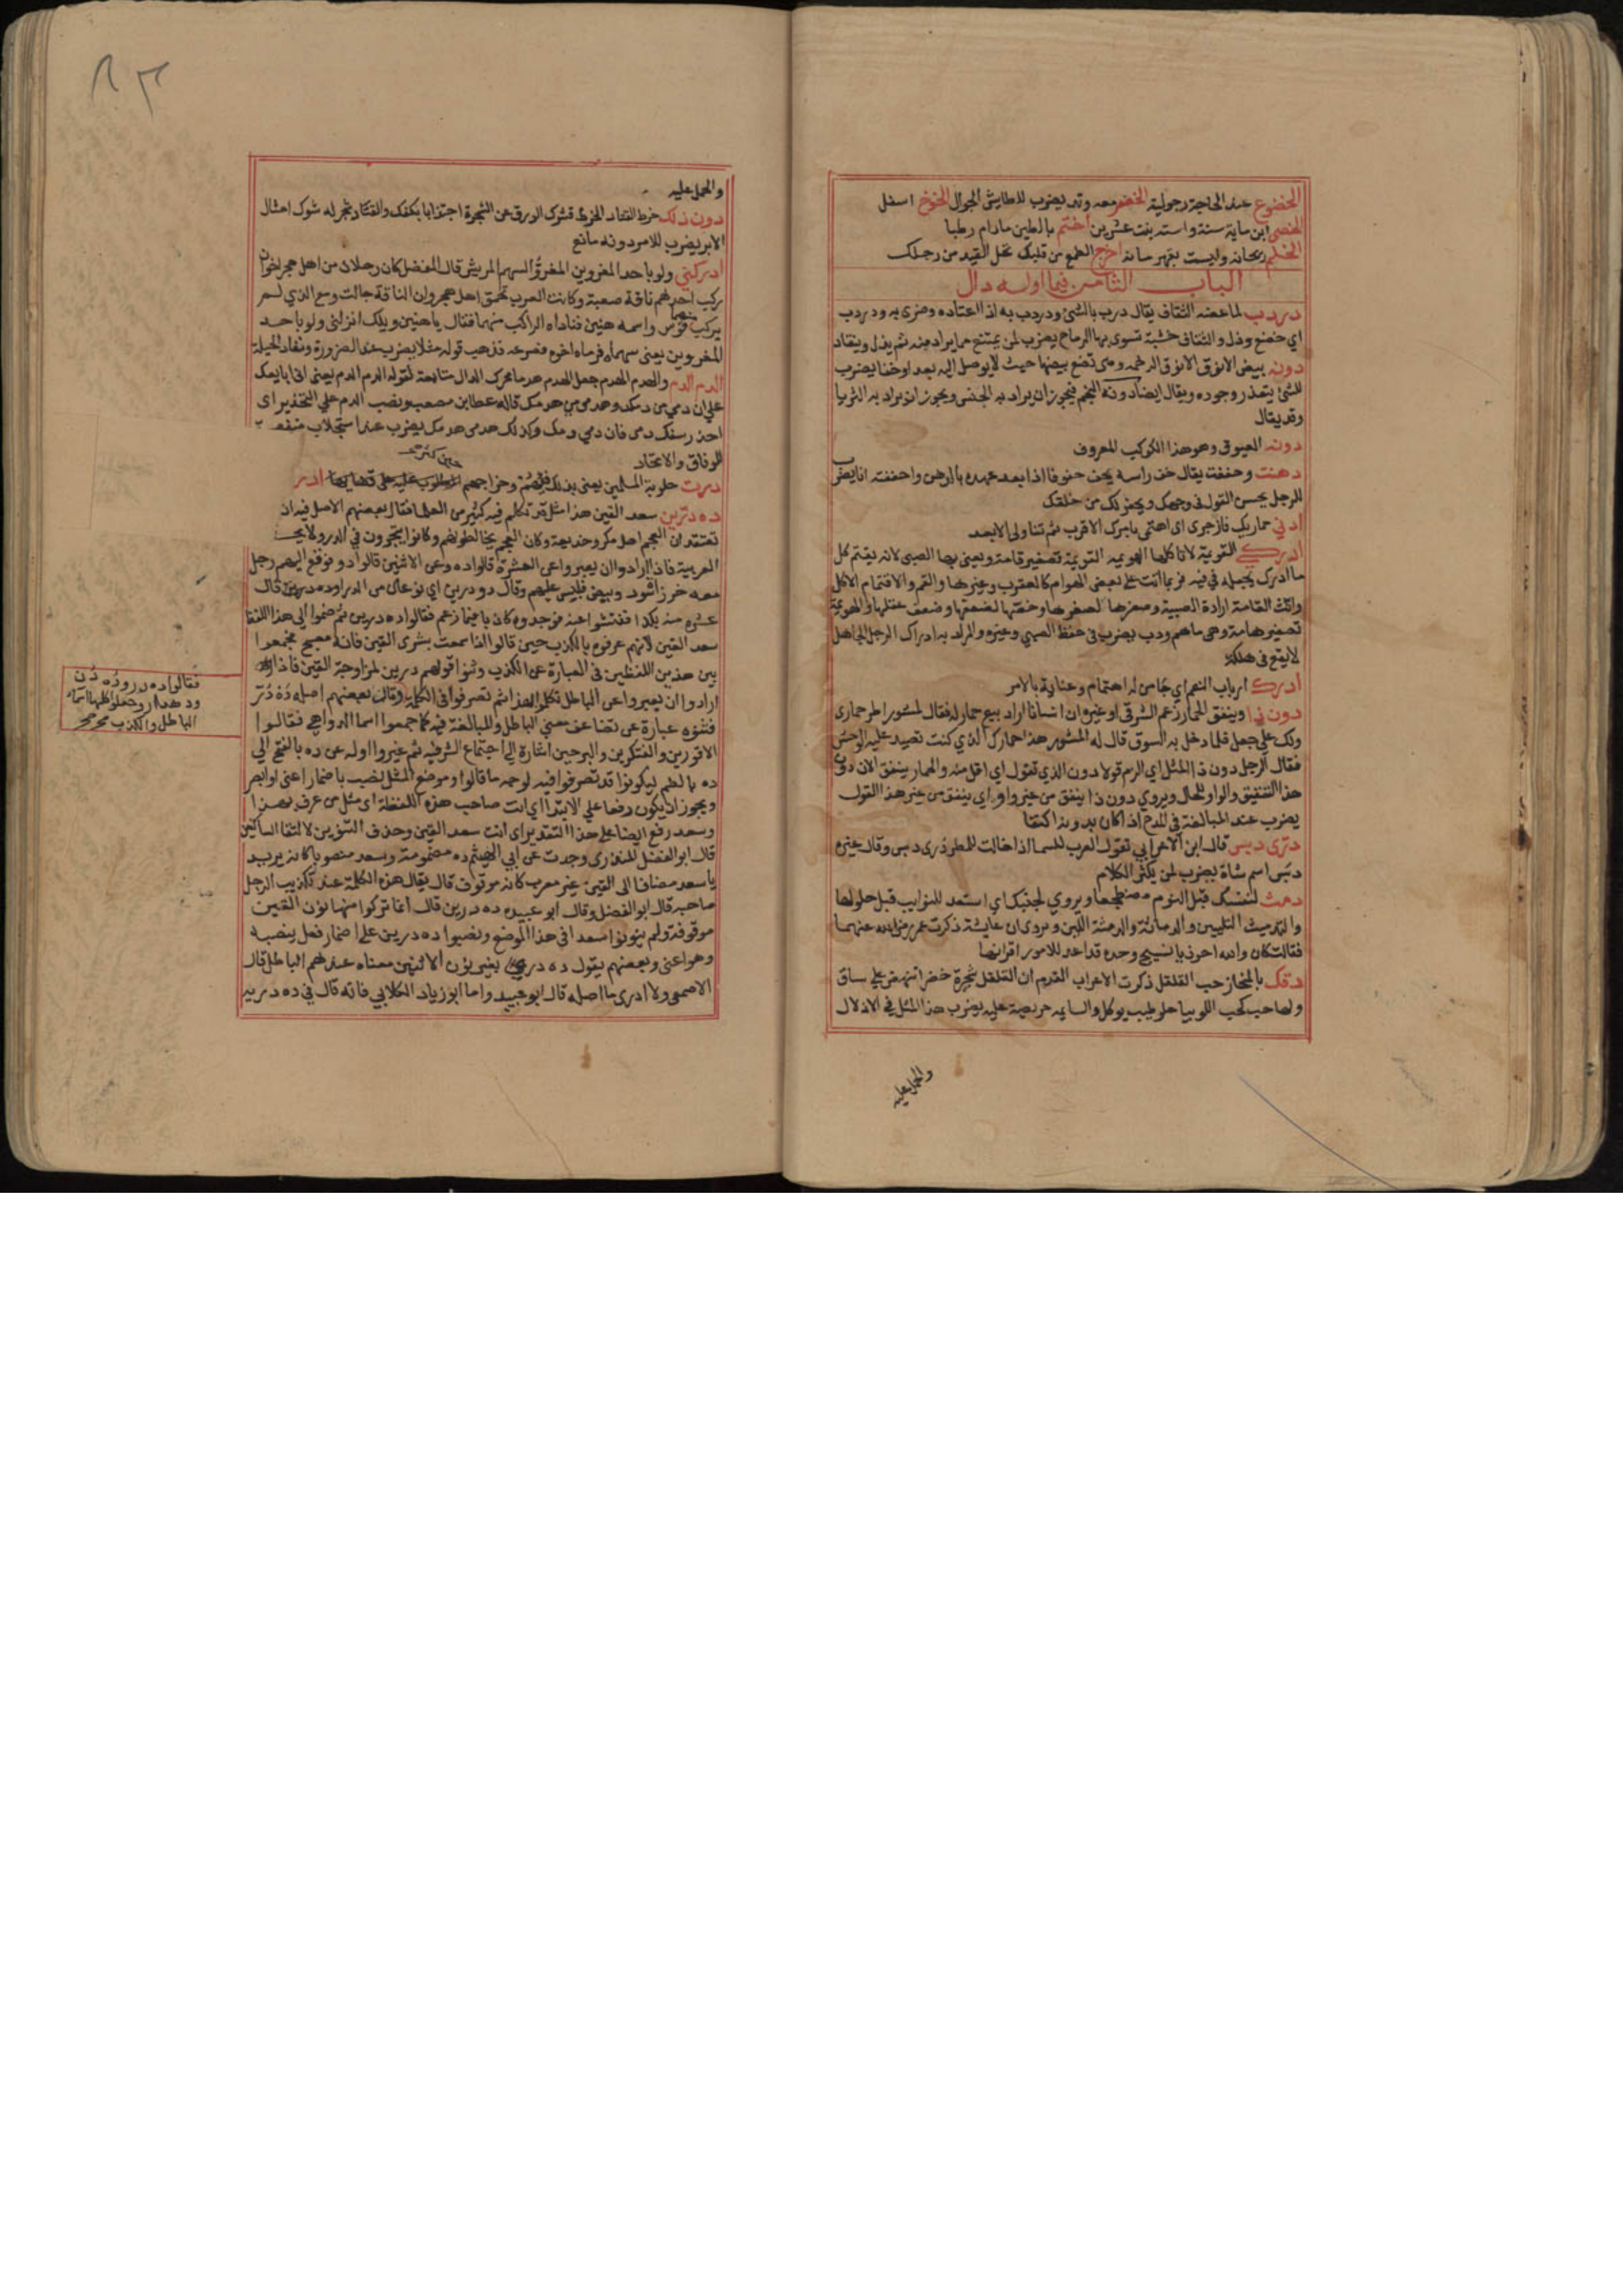 الخضوع عند الحاجة رجولية الخضر معه وتد يضرب للطايش الجوال الخوخ اسفل
الخصي ابن ماية سنة واسته بنت عشرين اختم بالطين مادام رطبا
ريحانة وليست بقهرمانة اخرج الطمع من قلبك تحل القيد من رجلك
الباب الثامن فيما اوله دال
دردب لما عضه الثقاف يقال درب بالشي ودردب به اذا اعتاده وضرى به ودردب
اي خضع وذل والثقاف خشبة تسوى بها الرماح يضرب لمن يمتنع مما يراد منه ثم يذل وينقاد
دونه بيض الانوق الانوق الرخمة وهي تضع بيضها حيث لا يوصل اليه بعدا وخفا يضرب
للشي يتعذر وجوده ويقال ايضا دونه النجم فيجوز ان يراد به الجنس ويجوز ان يراد به الثريا
وقد يقال
دونه العيوق وهو هذا الكوكب المعروف
دهنت وحففت يقال حف راسه يحف حفوفا اذا بعد عهده بالدهن واحففته انا يضرب
للرجل يحسن القول في وجهك ويحفر لك من خلفك
ادني حماريك فازجري اي اهتمي بامرك الاقرب ثم تناولي الابعد
ادركي القويمة لا تاكلها الهويمة القويمة تصغير قامة ويعني بها الصبي لانه يقتم كل
ما ادرك يجعله في فيه فربما اتت على بعض الهوام كالعقرب وغيرها والقم والاقتمام الاكل
وانث القامة ارادة الصبية وصغرها لصغرها وخصتها لضعفها وضعف عقلها والهويمة
تصغير هامة وهي ما هم ودب يضرب في حفظ الصبي وغيره والمراد به ادراك الرجل الجاهل
لا يقع في هلكة
ادرك ارباب النعم اي جا من له اهتمام وعناية بالامر
دون ذا وينفق الحمار زعم الشرقي او غيره ان انسانا اراد بيع حمار له فقال لمشور اطر حماري
ولك علي جعل فلما دخل به السوق قال له المشور هذا حمارك الذي كنت تصيد عليه الوحش
فقال الرجل دون ذا المثل اي الزم قولا دون الذي تقول اي اقل منه والحمار ينفق الان دون
هذا التنفيق والواو للحال ويروي دون ذا ينفق من غير واو اي ينفق من غير هذا القول
يضرب عند المبالغة في المدح اذا كان بدونه اكتفا
دري دبس قال ابن الاعرابي تقول العرب للسما اذا خالت للمطر دري دبس وقال غيره
دبس اسم شاة يضرب لمن يكثر الكلام
دمث لنفسك قبل النوم مضطجعا ويروي لجنبك اي استعد للنوايب قبل حلولها
والتدميث التليين والدماثة والدمثة اللين ويروي ان عايشة ذكرت عمر رضي الله عنهما
فقالت كان والله احوذيا نسيج وحده قد اعد للامور اقرانها
دقك بالمنحاز حب القلقل ذكرت الاعراب القدم ان القلقل شجرة خضرا تنهض على ساق
ولها حب كحب اللوبيا حلو طيب يوكل والسايمة حريصة عليه يضرب هذا المثل في الاذلال
والحمل عليه
والحمل عليه
دون ذلك خرط القتاد الخرط قشرك الورق عن الشجرة اجتذابا بكفك والقتاد شجر له شوك امثال
الابر يضرب للامر دونه مانع
ادركني ولو باحد المغروين المغرو السهم المريش قال المفضل كان رجلان من اهل هجر اخوان
ركب احدهما ناقة صعبة وكانت العرب تحمق اهل هجر وان الناقة جالت ومع الذي لم
يركب منهما قوس واسمه هنين فناداه الراكب منهما فقال يا هنين ويلك انزلني ولو باحد
المغروين يعني سهمه فرماه اخوه فصرعه فذهب قوله مثلا يضرب عند الضرورة ونفاد الحيلة
الدم الدم والهدم الهدم جعل الهدم هدما محرك الدال متابعة لقوله الدم الدم يعني اني ابايعك
علي ان دمي من دمك وهدمي من هدمك قاله عطا بن مصعب ونصب الدم علي التحذير اي
احذر سفك دمي فان دمي دمك وكذلك هدمي هدمك يضرب عند استجلاب منفعة
للوفاق والاتحاد
درت حلوبة المسلمين يعني بذلك فيهم وخراجهم حين كثرت
ده درين سعد القين هذا مثل قد تكلم فيه كثير من العلما فقال بعضهم الاصل فيه ان
تعتقد ان العجم اهل مكر وخديعة وكان العجم يخالطونهم وكانوا يتجرون في الدر ولا
العربية فاذا ارادوا ان يعبروا عن العشرة قالوا ده وعن الاثنين قالوا دو فوقع اليهم رجل
معه خرز اسود وبيض فلبس عليهم وقال دو درين اي نوعان من الدر او ده درين قال
عشرة منه بكذا ففتشوا عنه فوجدوه كاذبا فيما زعم فقالوا ده درين ثم ضموا الي هذا اللفظ
سعد القين لانهم عرفوه بالكذب حين قالوا اذا سمعت بسرى القين فانه مصبح فجمعوا
بين هذين اللفظين في العبارة عن الكذب وثنوا قولهم درين لمزاوجة القين فاذا
ارادوا ان يعبروا عن الباطل تكلموا بهذا ثم تصرفوا في الكلمة وقال بعضهم اصله ده در
فثنوه عبارة عن تضاعف معني الباطل والمبالغة فيه كما جمعوا اسما الدواهي فقالوا
الاقورين والفتكرين والبرحين اشارة الي اجتماع الشر فيه ثم غيروا اوله عن ده بالفتح الي
ده بالضم ليكونوا قد تصرفوا فيه لوجه ما قالوا وموضع المثل نصب باضمار اعني او ابصر
ويجوز ان يكون رفعا علي الابتدا اي انت صاحب هذه اللفظة اي مثل من عرف بهذا
وسعد رفع ايضا على هذا التقدير اي انت سعد القين وحذف التنوين لالتقا الساكنين
قال ابو الفضل المنذري وجدت عن ابي الهيثم ده مضمومة وسعد منصوبا كانه يريد
يا سعد مضافا الى القين غير معرب كانه موقوف قال يقال هذه الكلمة عند تكذيب الرجل
صاحبه قال ابو الفضل وقال ابو عبيده ده درين قال انما تركوا منها نون القين
موقوفة ولم ينونوا سعدا في هذا الموضع ونصبوا ده درين على اضمار فعل ينصبه
وهو اعني وبعضهم يقول ده دري بغير نون الاثنين معناه عندهم الباطل قال
الاصمعي ولا ادري ما اصله قال ابو عبيد واما ابو زياد الكلابي فانه قال في ده دريه
فقالوا ده در وده دن
وده دار وجعلوا كلها اسما
الباطل والكذب